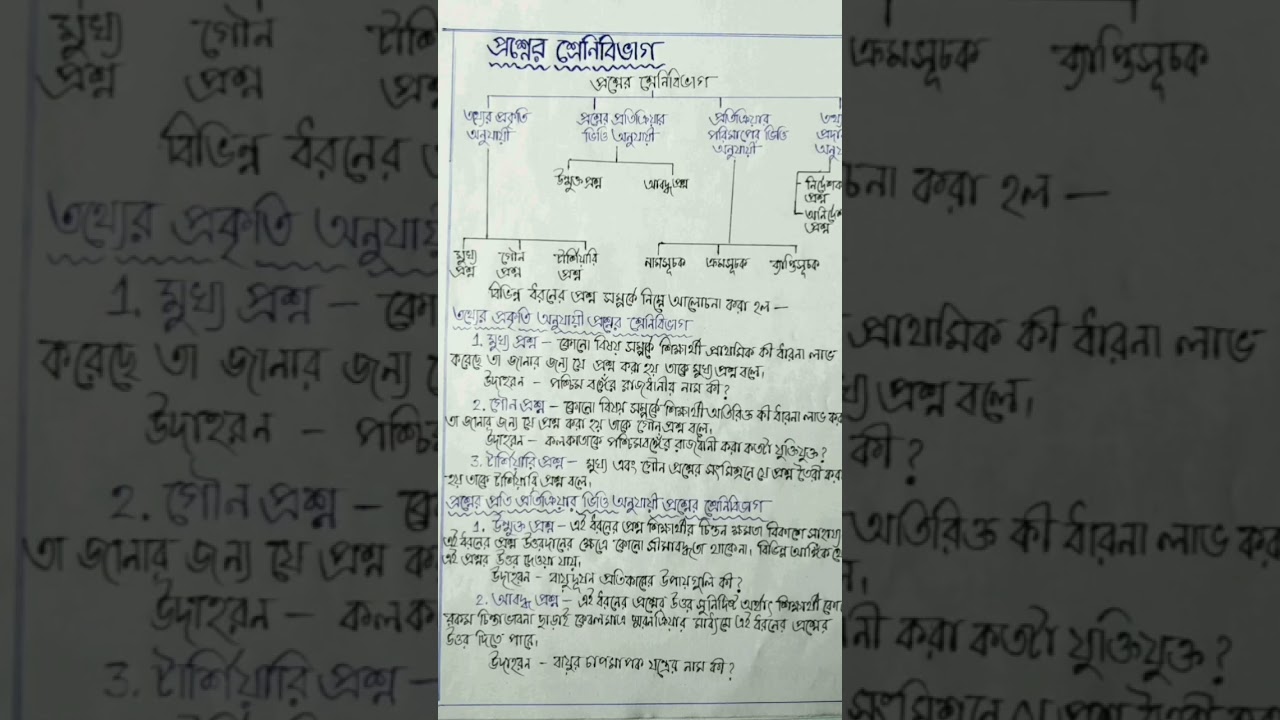 প্রশ্নের শ্রেনিবিভাগ
প্রশ্নের শ্রেনিবিভাগ
তথ্যের প্রকৃতি অনুযায়ী
প্রশ্নের প্রতিক্রিয়ার ভিত্তি অনুযায়ী
প্রতিক্রিয়ার পরিমাপের ভিত্তি অনুযায়ী
উন্মুক্ত প্রশ্ন
আবদ্ধ প্রশ্ন
প্রশ্ন
প্রশ্ন
মুখ্য প্রশ্ন
গৌন প্রশ্ন
টার্শিয়ারি প্রশ্ন
নামসূচক
ক্রমসূচক
ব্যাপ্তিসূচক
বিভিন্ন ধরনের প্রশ্ন সম্পর্কে নিম্নে আলোচনা করা হল —
তথ্যের প্রকৃতি অনুযায়ী প্রশ্নের শ্রেনিবিভাগ
1. মুখ্য প্রশ্ন – কোনো বিষয় সম্পর্কে শিক্ষার্থী প্রাথমিক কী ধারনা লাভ
করেছে তা জানার জন্য যে প্রশ্ন করা হয় তাকে মুখ্য প্রশ্ন বলে।
উদাহরন – পশ্চিম বঙ্গের রাজধানীর নাম কী?
2. গৌন প্রশ্ন – কোনো বিষয় সম্পর্কে শিক্ষার্থী অতিরিক্ত কী ধারনা লাভ কর
তা জানার জন্য যে প্রশ্ন করা হয় তাকে গৌন প্রশ্ন বলে।
উদাহরন – কলকাতাকে পশ্চিমবঙ্গের রাজধানী করা কতটা যুক্তিযুক্ত?
3. টার্শিয়ারি প্রশ্ন – মুখ্য এবং গৌন প্রশ্নের সংমিশ্রনে যে প্রশ্ন তৈরী করা
হয় তাকে টার্শিয়ারি প্রশ্ন বলে।
প্রশ্নের প্রতি প্রতিক্রিয়ার ভিত্তি অনুযায়ী প্রশ্নের শ্রেনিবিভাগ
1. উন্মুক্ত প্রশ্ন – এই ধরনের প্রশ্ন শিক্ষার্থীর চিন্তন ক্ষমতা বিকাশে সাহায্য
এই ধরনের প্রশ্ন উত্তরদানের ক্ষেত্রে কোনো সীমাবদ্ধতা থাকেনা। বিভিন্ন আঙ্গিক
এই প্রশ্নর উত্তর দেওয়া যায়।
উদাহরন – বায়ুদূষন প্রতিকারের উপায়গুলি কী?
2. আবদ্ধ প্রশ্ন – এই ধরনের প্রশ্নের উত্তর সুনির্দিষ্ট অর্থাৎ শিক্ষার্থী
রকম চিন্তাভাবনা ছাড়াই কেবলমাত্র স্মরনক্রিয়ার মাধ্যমে এই ধরনের প্রশ্নের
উত্তর দিতে পারে।
উদাহরন – বায়ুর চাপমাপক যন্ত্রের নাম কী?